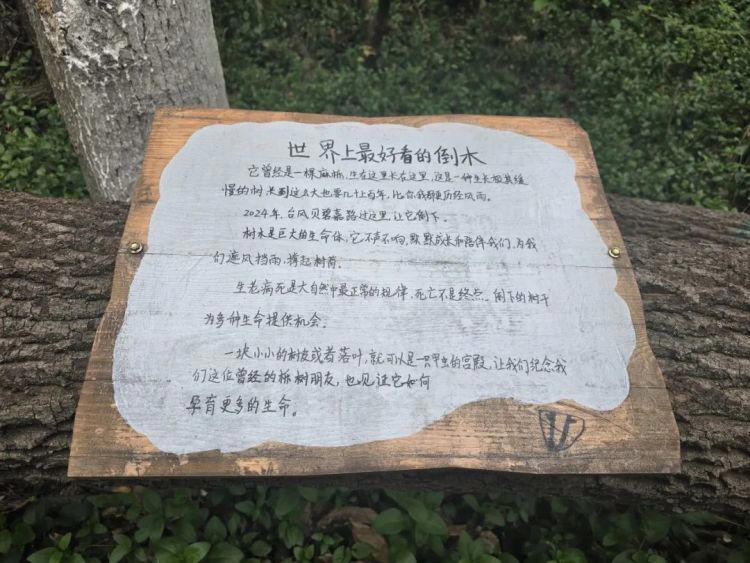 世界上最好看的倒木
它曾经是一棵麻栎,生在这里长在这里,这是一种生长极其缓
慢的树,长到这么大也要几十上百年,比你我都更历经风雨。
2024年,台风贝碧嘉路过这里,让它倒下。
树木是巨大的生命体,它不声不响,默默成长和陪伴我们,为我
们遮风挡雨,撑起树荫。
生老病死是大自然中最正常的规律,死亡不是终点。倒下的树干
为多种生命提供机会。
一块小小的树皮或者落叶,就可以是一只甲虫的宫殿,让我们纪念我
们这位曾经的栎树朋友,也见证它如何
孕育更多的生命。